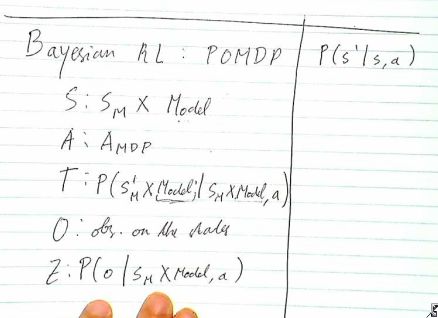 Bayesian RL : POMDP
P(s'|s,a)
S : S_M X Model
A : A_MDP
T : P(S'_M X Model'|S_M X Model, a)
O : obs. on the states
Z : P(o|S_M X Model, a)